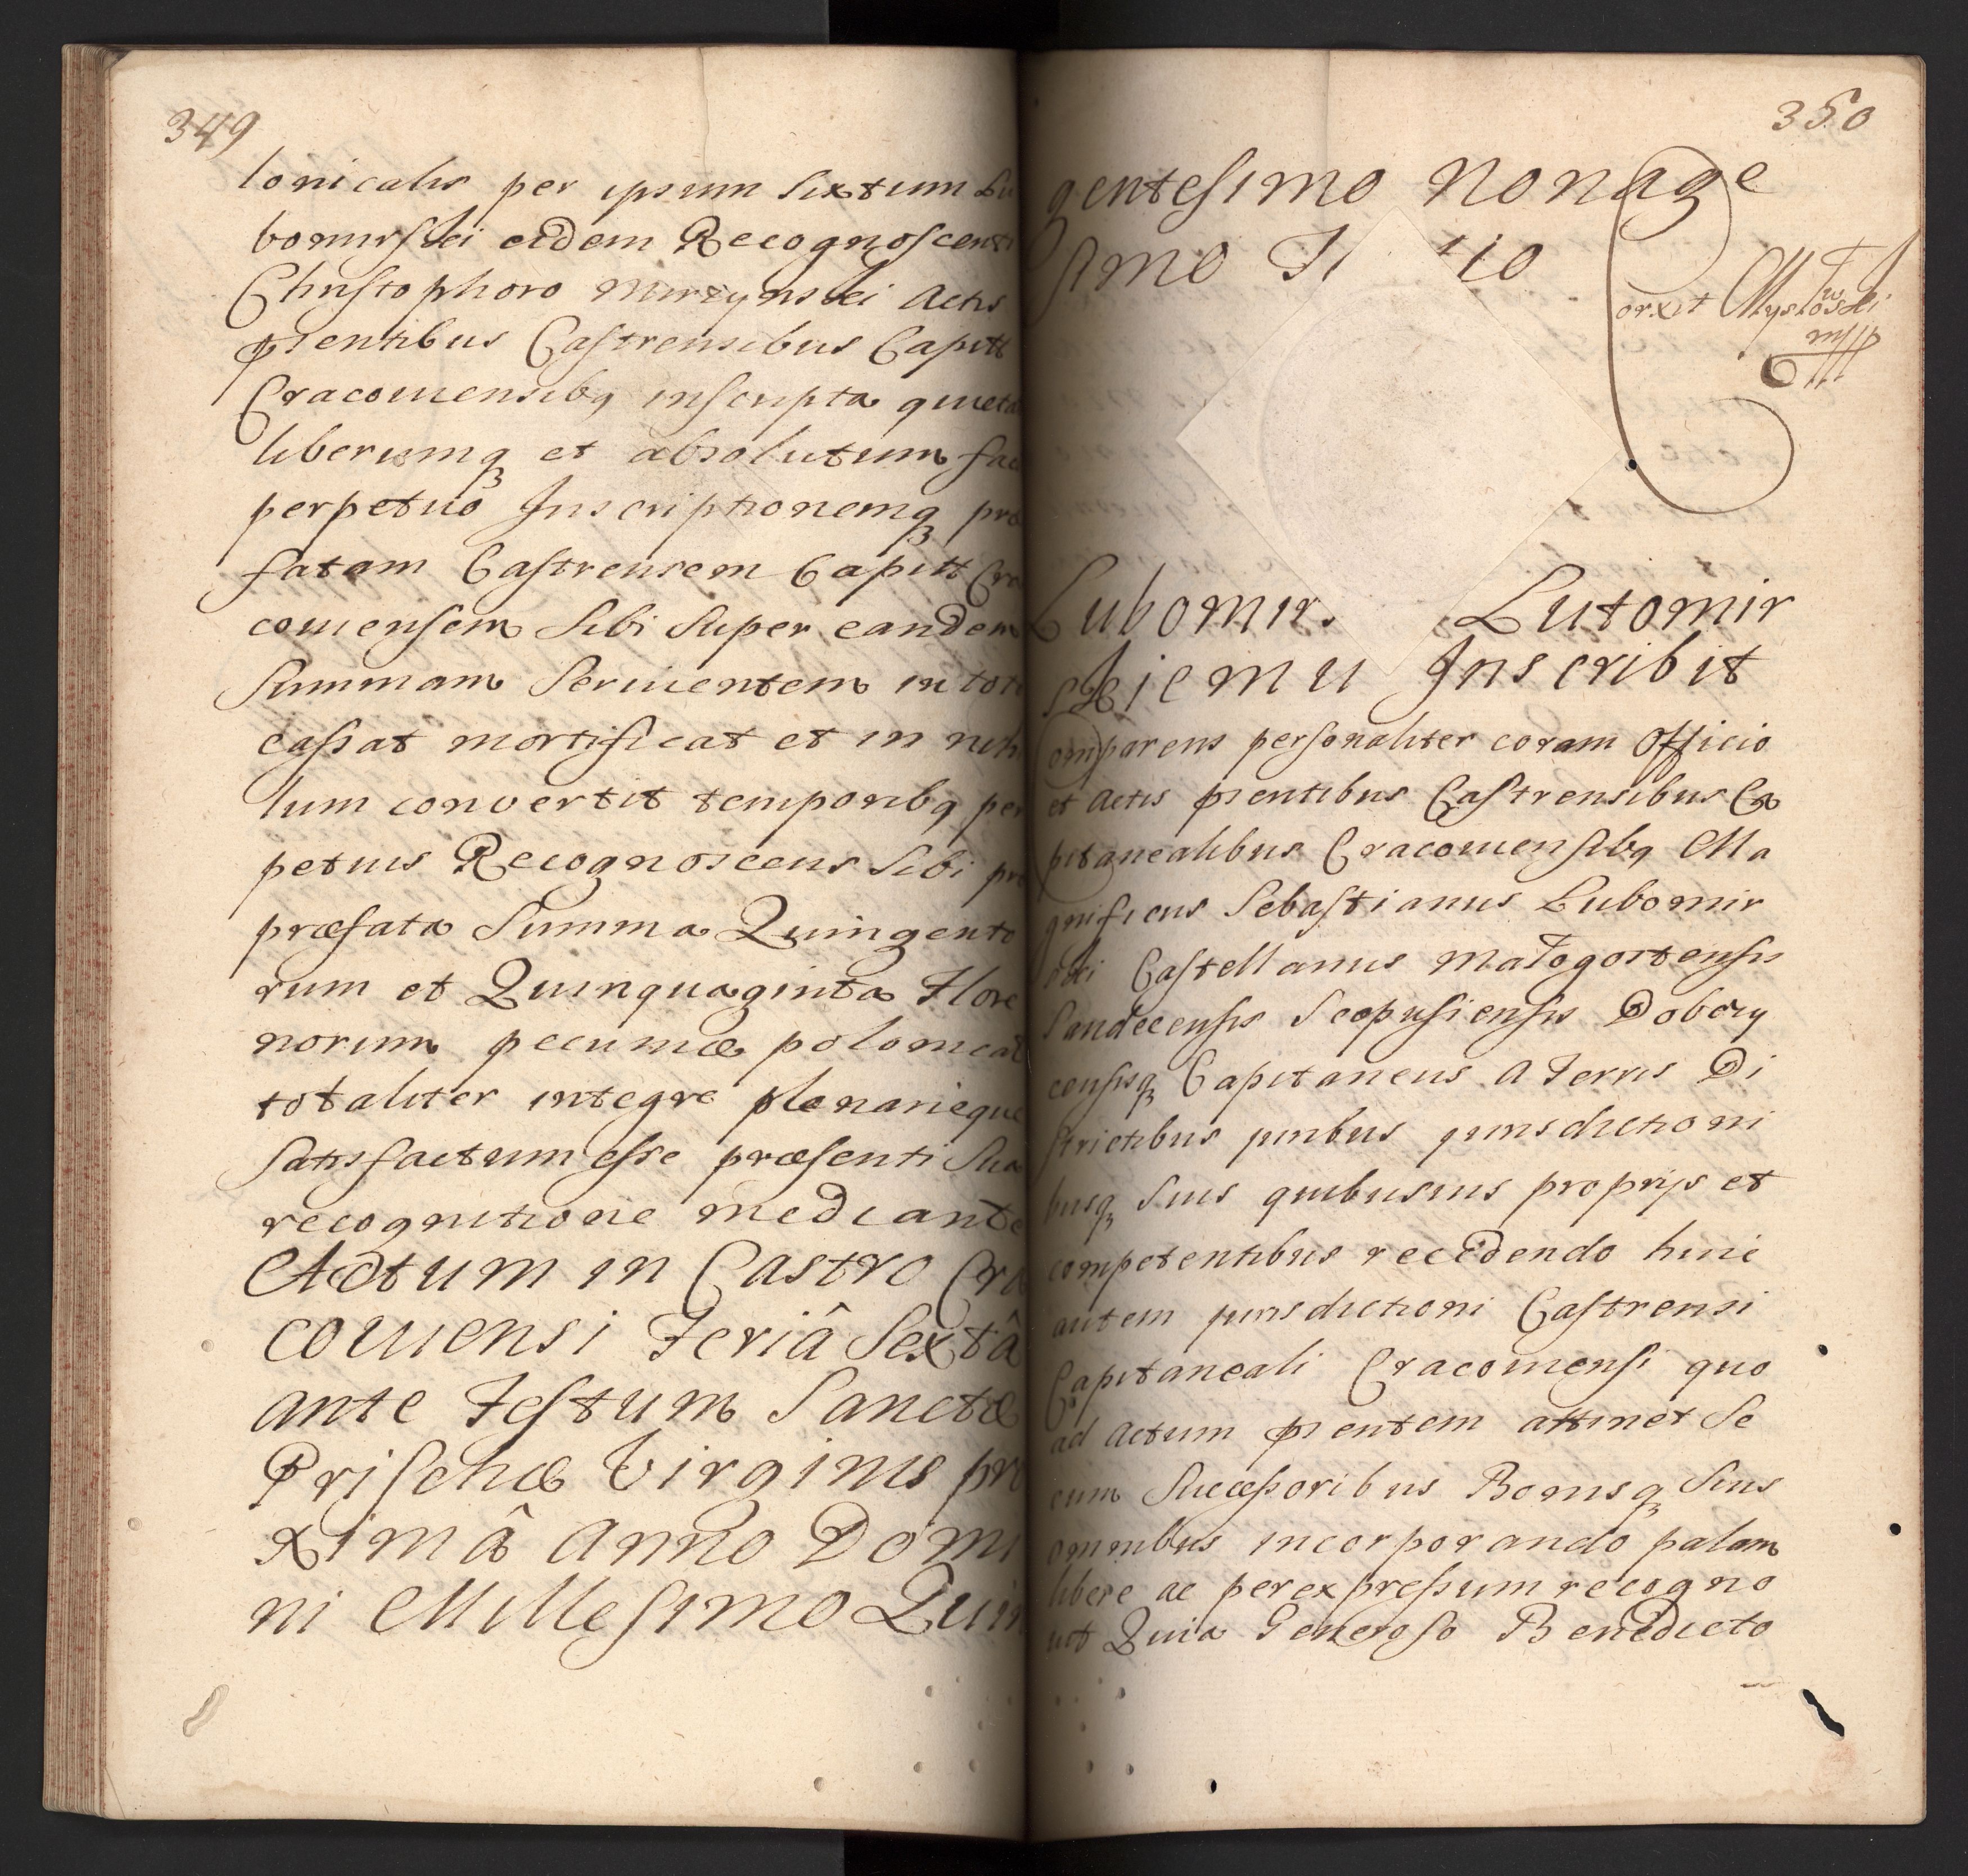 349
lonicalis per ipsum Sixtum Lu
bomirski eidem Recognoscenti
Christophoro Mirzynski Actis
pntentibus Castrensibus Capitt
Cracouiensibq inscripta quieta
liberumq et absolutum fac
perpetuo Inscriptionemq prae
fatam Castrensem Capitt Cra
couiensem Sibi Super eandem
Summam Seruientem in toto
cassat mortificat et in nihi
lum convertit temporibq per
petuis Recognoscens Sibi pro
præfata Summa Quingento
rum et Quinquaginta Flore
norum pecuniæ polonical
totaliter integre plenarieque
Satisfactum esse præsenti Sua
recognitione mediante
Actum in Castro Cra
couiensi Feriâ Sextâ
ante Festum Sanctæ
Prischæ Virginis pro
ximâ Anno Domi
ni Millesimo Quin
350
gentesimo Nonage
simo
orxit
mpp
Lubomirs Lutomir
skiemu Inscribit
Comparens personaliter coram Officio
et Actis pntibus Castrensibus Ca
pitanealibus Cracouiensibq Ma
gnificus Sebastianus Lubomir
ski Castellanus Małogostensis
Sandecensis Scepusiensis Dobczy
censisq Capitaneus A Terris Di
strictibus juribus jurisdictioni
busq Suis quibusuis proprijs et
competentibus recedendo huic
autem jurisdictioni Castrensi
Capitaneali Cracouiensi quo
ad Actum pntem attinet Se
cum Successoribus Bonisq Suis
omnibus incorporando palam
libere ac per expressum recogno
uit Quia Generoso Benedicto